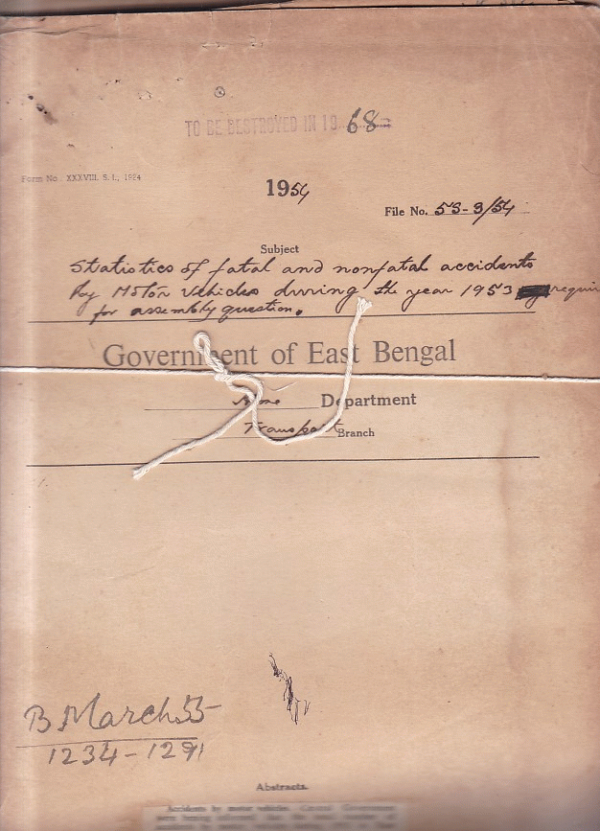 TO BE DESTROYED IN 19 68
Form No. XXXVIII. S. I., 1924
1954
File No. 5S-3/54
Subject
Statistics of fatal and nonfatal accidents
by Motor Vehicles during the year 1953 requir
for assembly question.
Government of East Bengal
Home Department
Transport Branch
B March 55
1234-1291
Abstracts.
Accidents by motor vehicles. Central Government